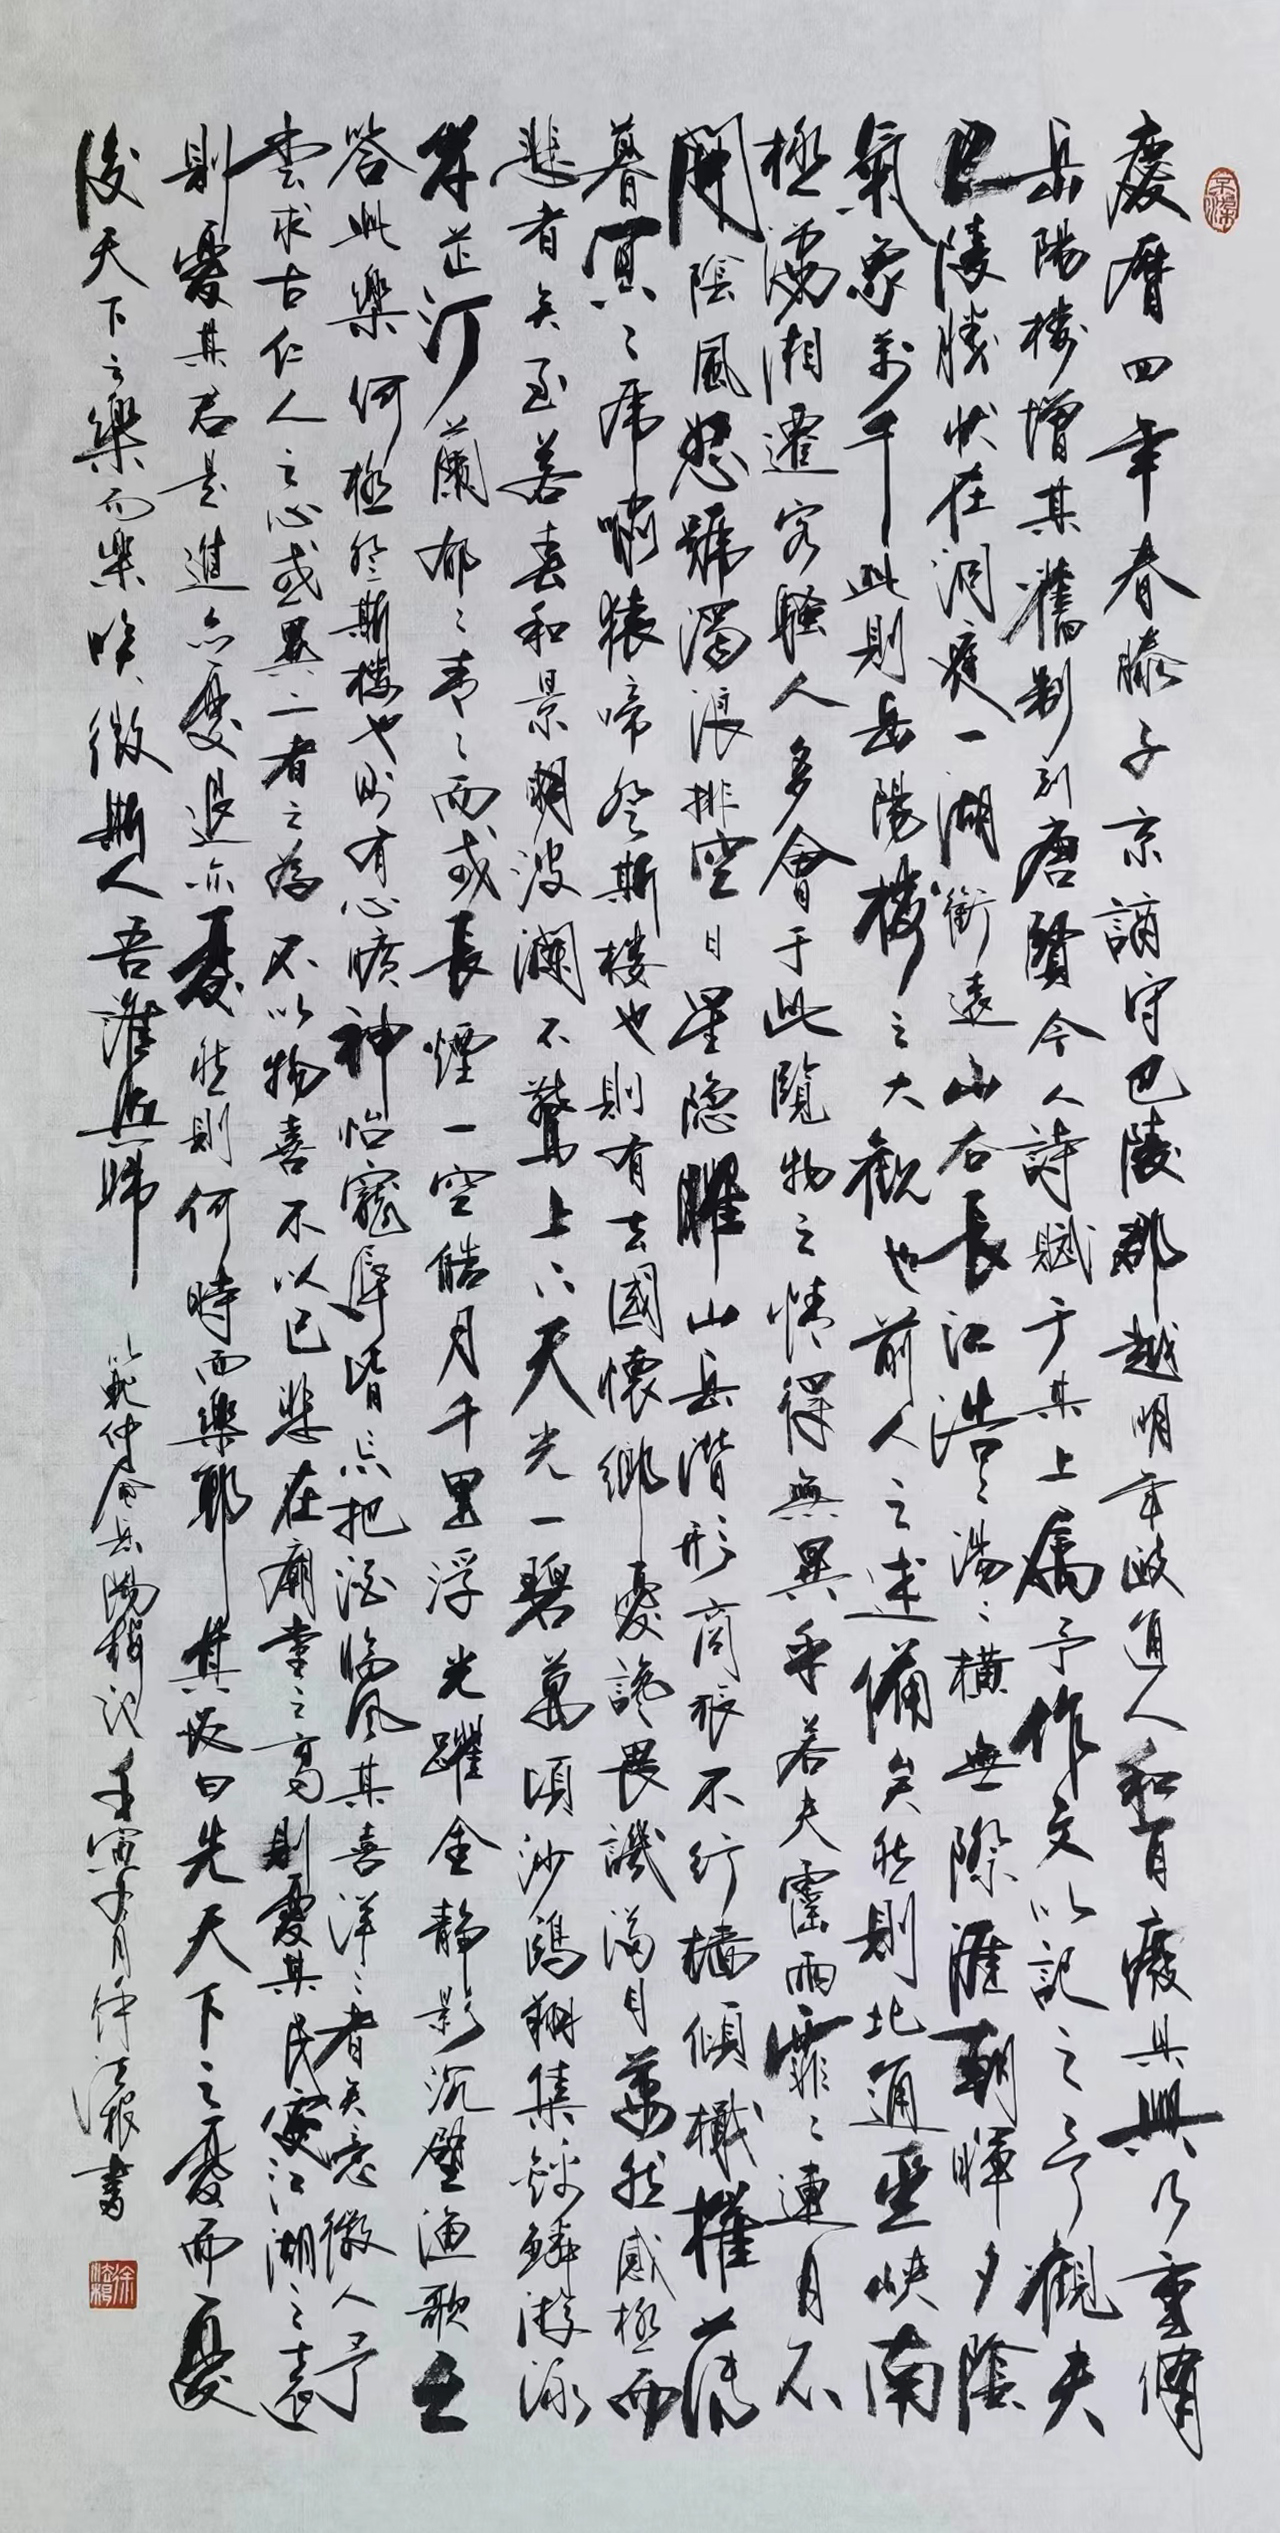 慶曆四年春滕子京謫守巴陵郡越明年政通人和百廢具興乃重脩
岳陽樓增其舊制刻唐賢今人詩賦于其上属予作文以記之予觀夫
巴陵勝狀在洞庭一湖銜遠山吞長江浩〻湯〻橫無際涯朝暉夕陰
氣象万千此則岳陽樓之大觀也前人之述備矣然則北通巫峽南
極瀟湘遷客騷人多會于此覽物之情得無異乎若夫霪雨霏〻連月不
開陰風怒號濁浪排空日星隱曜山岳潛形商旅不行檣傾檝摧薄
暮冥〻虎嘯猿啼登斯樓也則有去國懷鄉憂讒畏譏滿目蕭然感極而
悲者矣至若春和景明波瀾不驚上下天光一碧萬頃沙鷗翔集錦鱗游泳
岸芷汀蘭郁〻青〻而或長煙一空皓月千里浮光躍金靜影沉璧漁歌互
答此樂何極登斯樓也則有心曠神怡寵辱皆忘把酒臨風其喜洋〻者矣嗟夫予
嘗求古仁人之心或異二者之為不以物喜不以己悲在廟堂之高則憂其民處江湖之遠
則憂其君是進亦憂退亦憂然則何時而樂耶其必曰先天下之憂而憂
後天下之樂而樂噫微斯人吾誰與歸
范仲淹岳陽樓記壬寅年月徐法根書
徐法根